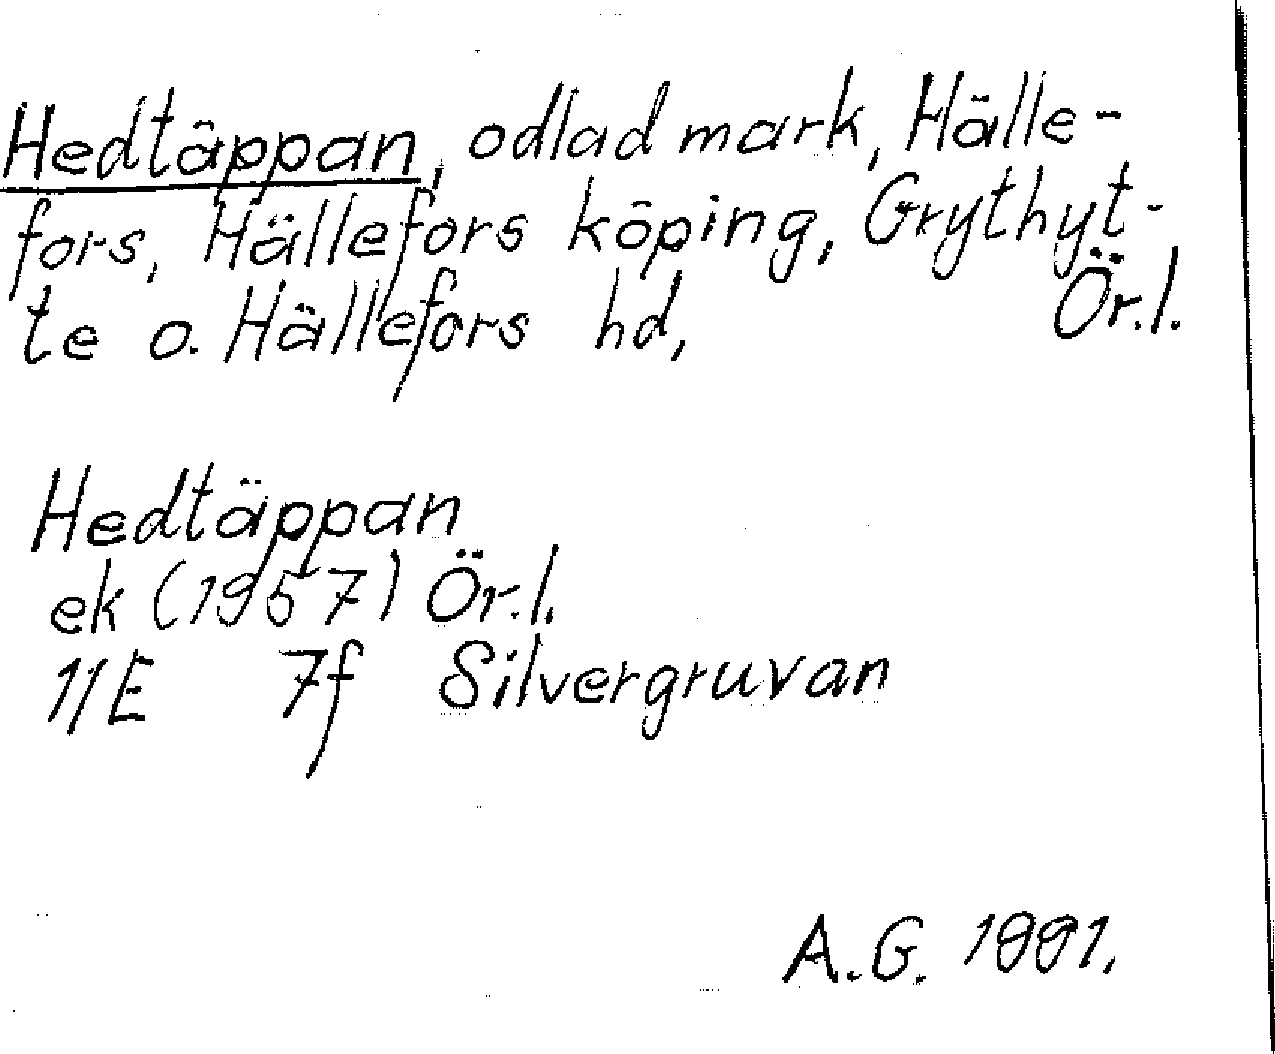 Hedtäppan, odlad mark, Hälle-
fors, Hällefors köping, Grythyt-
te o. Hällefors hd, Ör.l.
Hedtäppan
ek (1957) Ör.l.
11E 7f Silvergruvan
A.G. 1991.